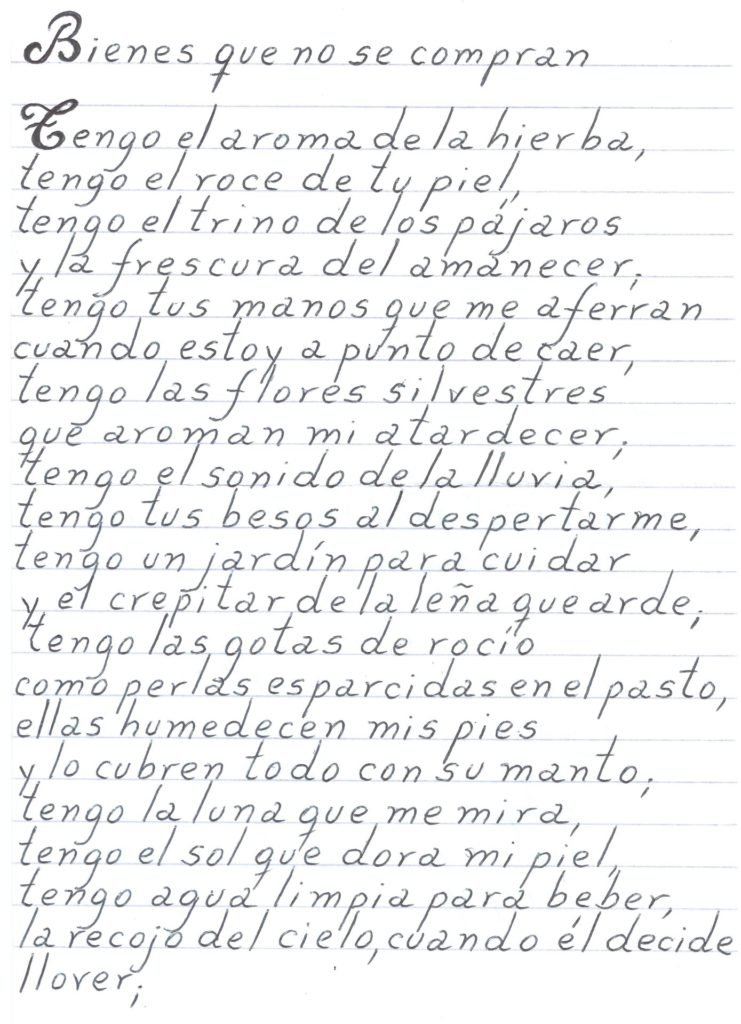 Bienes que no se compran
Tengo el aroma de la hierba,
tengo el roce de tu piel,
tengo el trino de los pájaros
y la frescura del amanecer;
tengo tus manos que me aferran
cuando estoy a punto de caer,
tengo las flores silvestres
que aroman mi atardecer;
tengo el sonido de la lluvia,
tengo tus besos al despertarme,
tengo un jardín para cuidar
y el crepitar de la leña que arde;
tengo las gotas de rocío
como perlas esparcidas en el pasto,
ellas humedecen mis pies
y lo cubren todo con su manto;
tengo la luna que me mira,
tengo el sol que dora mi piel,
tengo agua limpia para beber,
la recojo del cielo, cuando él decide
llover;